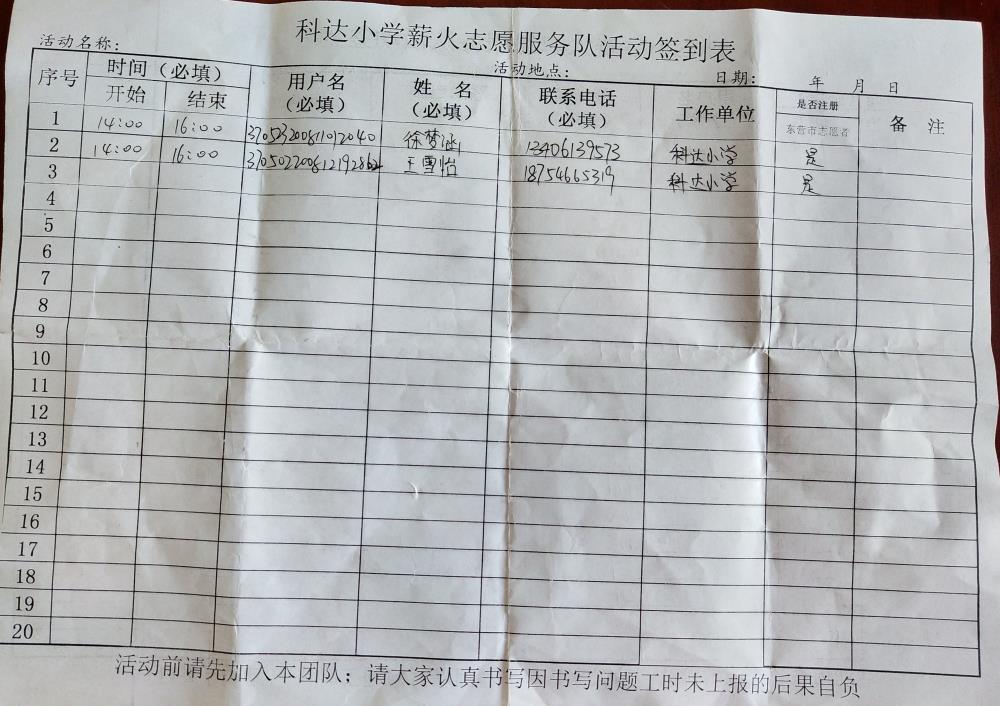 科达小学薪火志愿服务队活动签到表
活动名称： 活动地点： 日期： 年 月 日
序号 时间（必填） 用户名（必填） 姓 名（必填） 联系电话（必填） 工作单位 是否注册东营市志愿者 备 注
开始 结束
1 14:00 16:00 徐梦涵 13406139573 科达小学 是
2 14:00 16:00 王雪怡 18754665319 科达小学 是
3
4
5
6
7
8
9
10
11
12
13
14
15
16
17
18
19
20
活动前请先加入本团队；请大家认真书写因书写问题工时未上报的后果自负